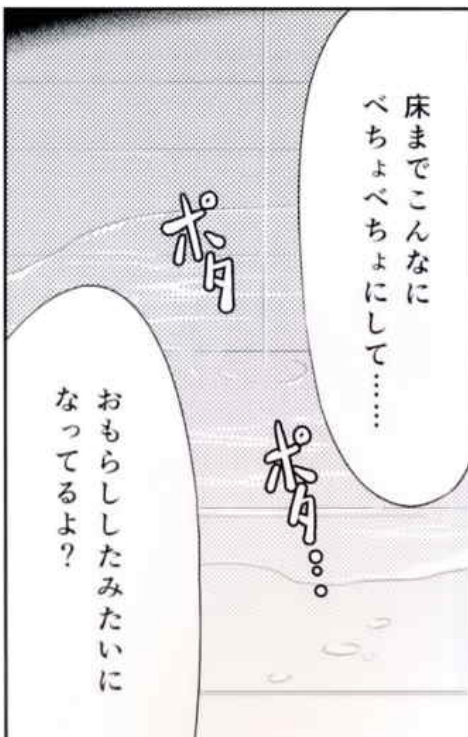 床までこんなに
べちょべちょにして……
ポタ
ポタ…
おもらししたみたいに
なってるよ？